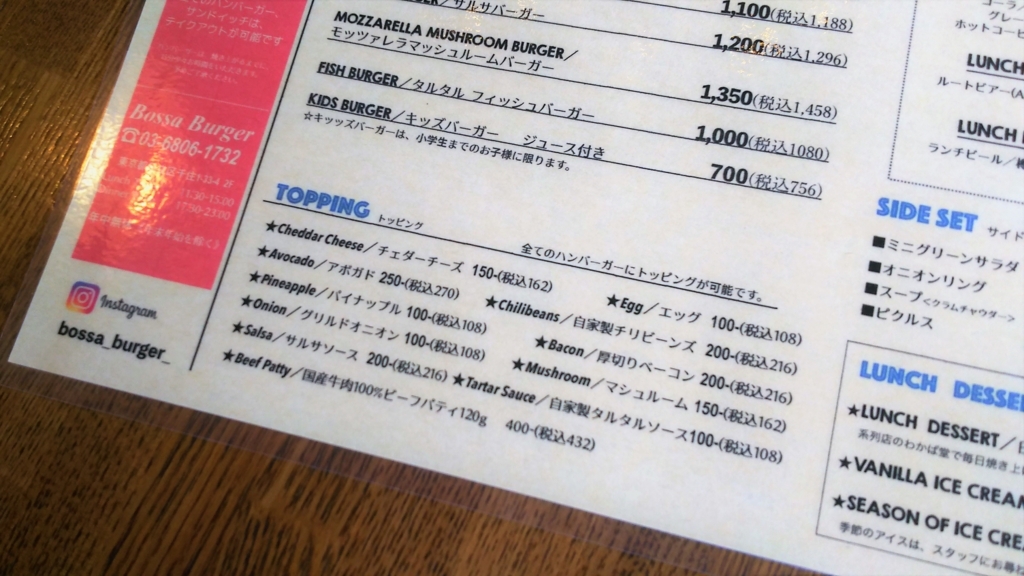 のハンバーガー、
サンドイッチは、
テイクアウトが可能です
Bossa Burger
☎03-6806-1732
Instagram
bossa_burger_
/サルサバーガー 1,100(税込1,188)
1,200(税込1,296)
MOZZARELLA MUSHROOM BURGER/
モッツァレラマッシュルームバーガー 1,350(税込1,458)
FISH BURGER/タルタル フィッシュバーガー 1,000(税込1080)
KIDS BURGER/キッズバーガー ジュース付き 700(税込756)
☆キッッズバーガーは、小学生までのお子様に限ります。
TOPPING トッピング
全てのハンバーガーにトッピングが可能です。
★Cheddar Cheese/チェダーチーズ 150-(税込162)
★Egg/エッグ 100-(税込108)
★Avocado/アボガド 250-(税込270)
★Chilibeans/自家製チリビーンズ 200-(税込216)
★Pineapple/パイナップル 100-(税込108)
★Bacon/厚切りベーコン 200-(税込216)
★Onion/グリルドオニオン 100-(税込108)
★Mushroom/マシュルーム 150-(税込162)
★Salsa/サルサソース 200-(税込216)
★Tartar Sauce/自家製タルタルソース100-(税込108)
★Beef Patty/国産牛肉100%ビーフパティ120g 400-(税込432)
コーラ/
グレー
ホットコーヒ
LUNCH
ルートビアー(A
LUNCH
ランチビール/
SIDE SET サイド
■ミニグリーンサラダ
■オニオンリング
■スープ<クラムチャウダー>
■ピクルス
LUNCH DESSE
★LUNCH DESSERT/
系列店のわかば堂で毎日焼き上
★VANILLA ICE CREAM
★SEASON OF ICE CRE
季節のアイスは、スタッフにお尋ね